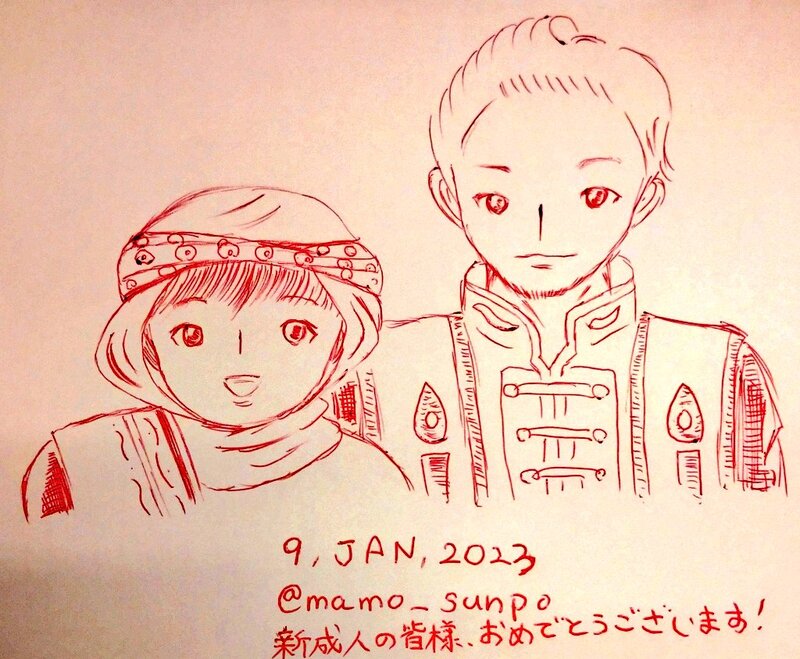 9, JAN, 2023
@mamo_sunpo
新成人の皆様、おめでとうございます!